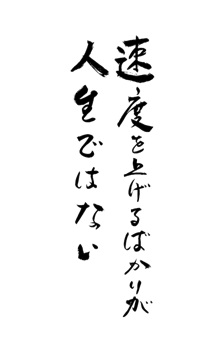 速度を上げるばかりが
人生ではない